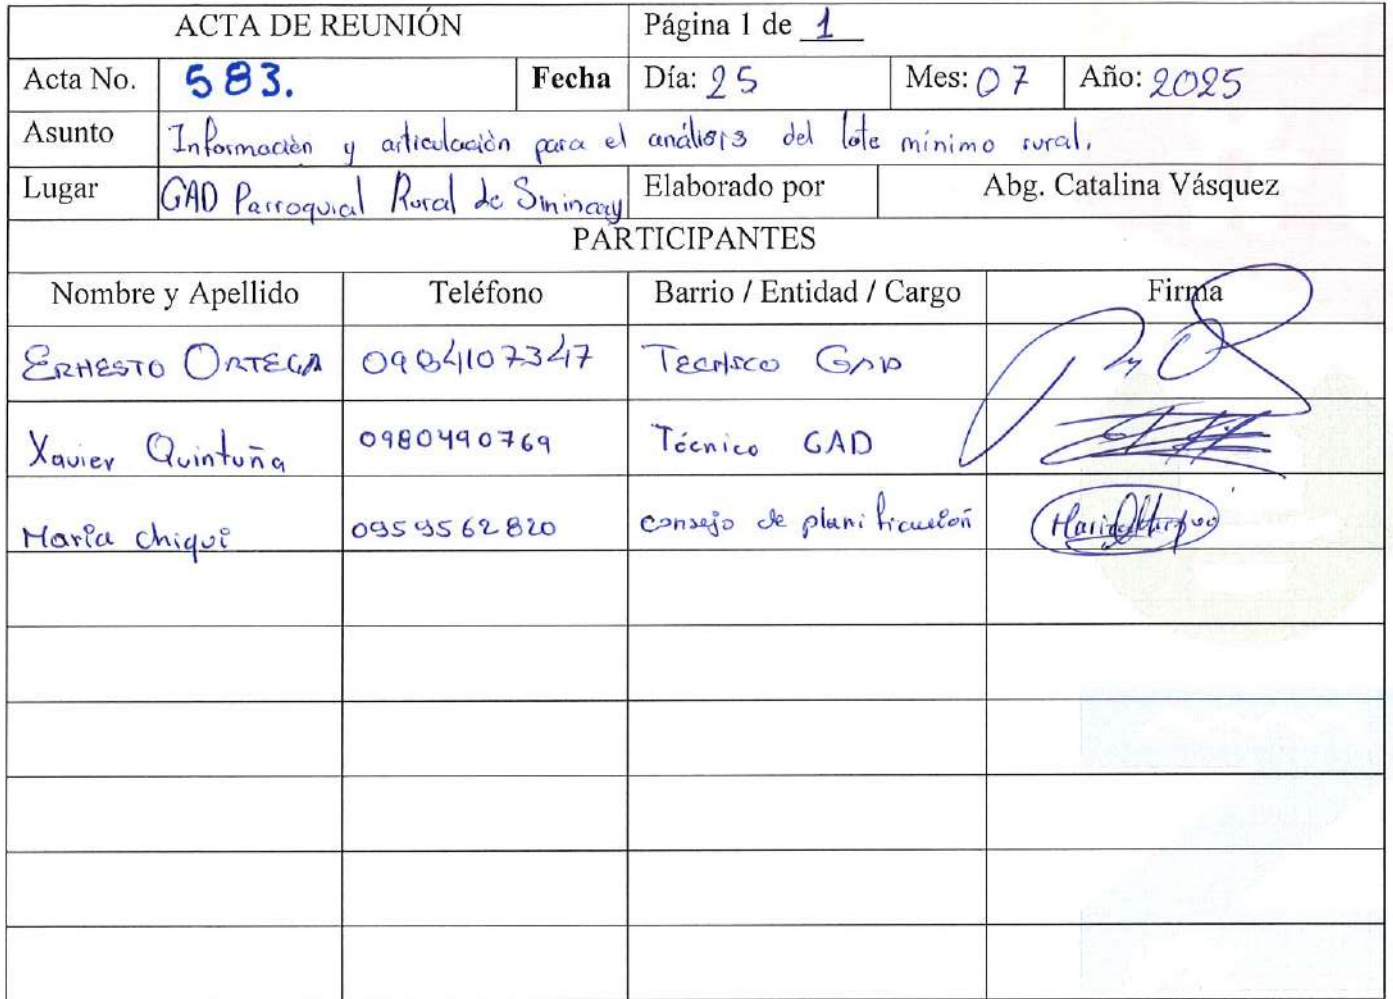 ACTA DE REUNIÓN Página 1 de 1
Acta No. 583. Fecha Día: 25 Mes: 07 Año: 2025
Asunto Información y articulación para el análisis del lote mínimo rural.
Lugar GAD Parroquial Rural de Sinincay Elaborado por Abg. Catalina Vásquez
PARTICIPANTES
Nombre y Apellido Teléfono Barrio / Entidad / Cargo Firma
ERNESTO ORTEGA 0984107347 TECNICO GAD
Xavier Quintuña 0980490769 Técnico GAD
Maria chiqui 0959562820 consejo de planificación